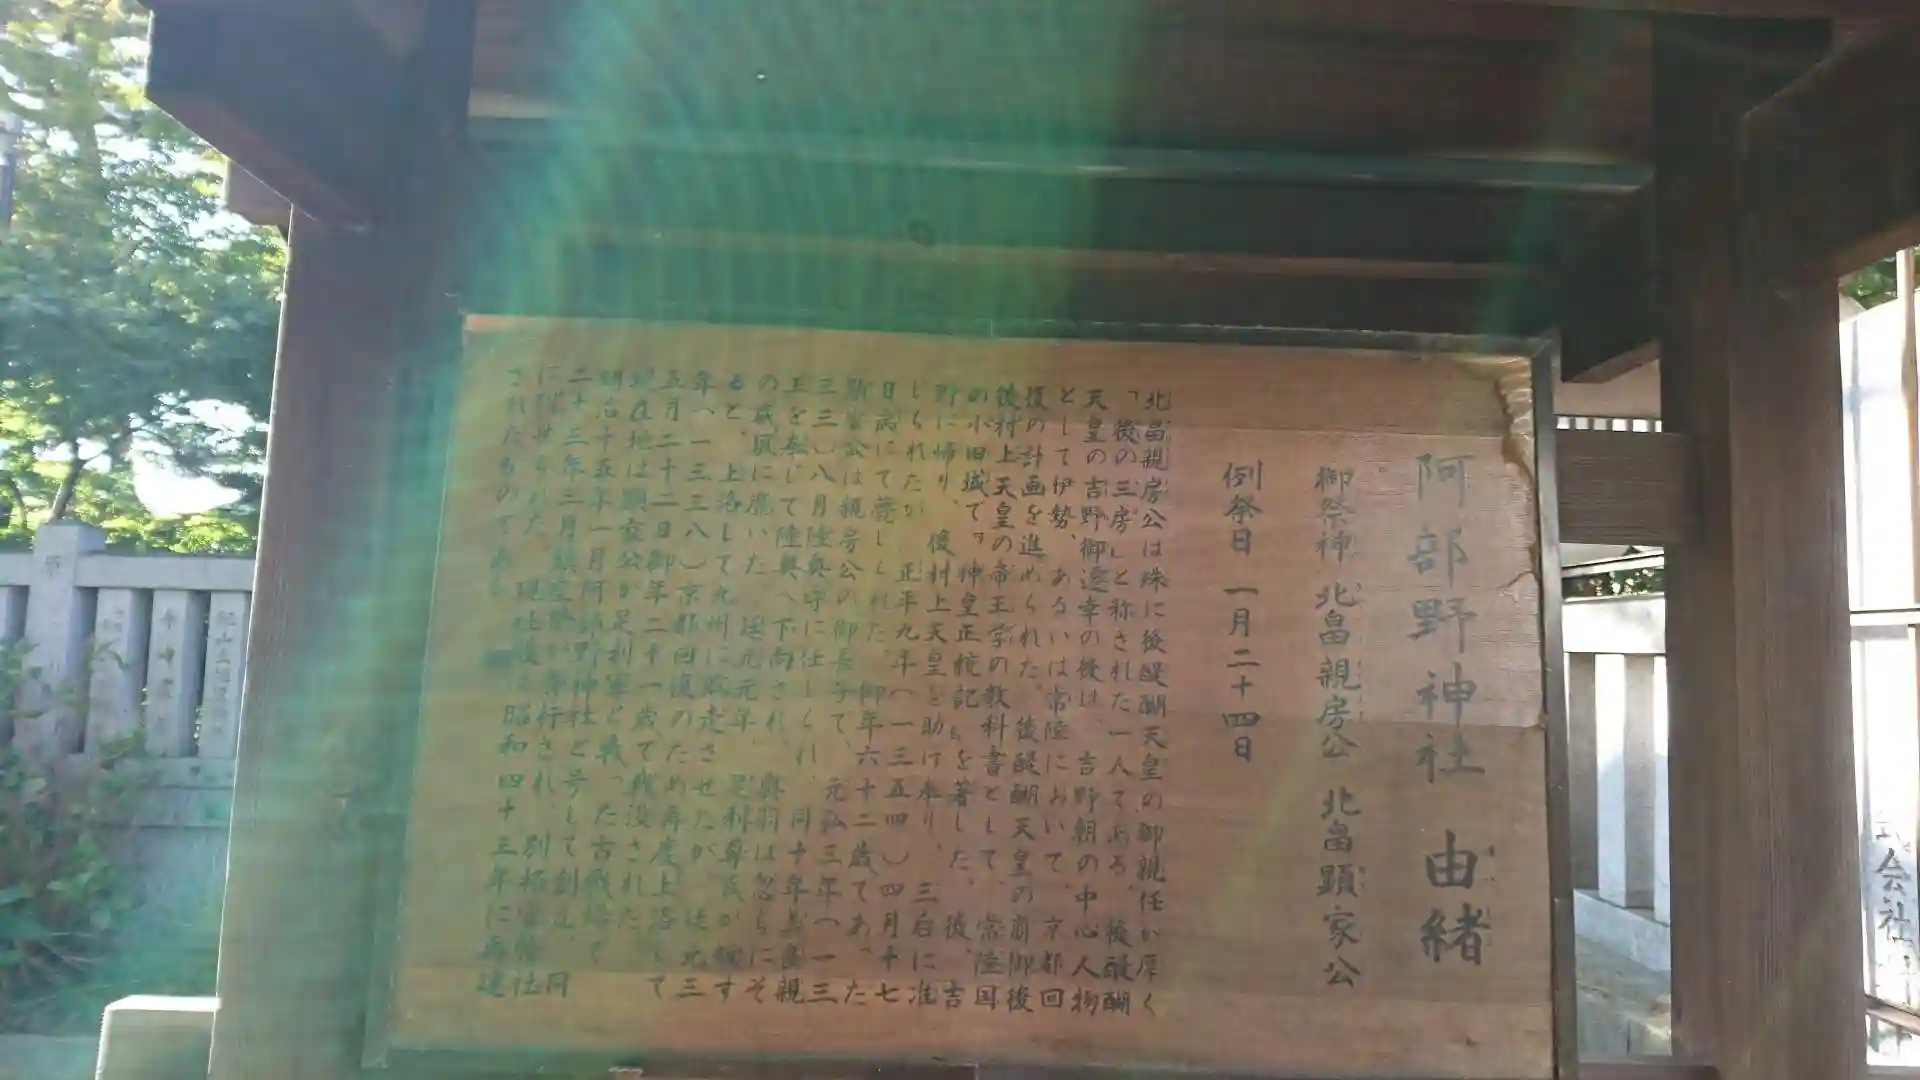 阿部野神社 由緒
御祭神 北畠親房公 北畠顕家公
例祭日 一月二十四日
北畠親房公は殊に後醍醐天皇の御親任が厚く
「後の三房」と称された一人である。後醍醐
天皇の吉野御遷幸の後は、吉野朝の中心人物
として伊勢、あるいは常陸において、京都回
復の計画を進められた。後醍醐天皇の崩御後
後村上天皇の帝王学の教科書として、常陸国
の小田城で『神皇正統記』を著した。後、吉
野に帰り、後村上天皇を助け奉り、三后に准
しられたが、正平九年(一三五四)四月十七
日病にて薨しられた。御年六十二歳であった
顕家公は親房公の御長子で、元弘三年(一三
三三)八月陸奥守に任しられ、同十年義良親
王を奉じて陸奥へ下向され、奥羽は忽ちにそ
の威風に靡いた。延元元年、足利尊氏が
ると、上洛して九州に敗走させたが、延元三
年(一三三八)京都回復のため再度上洛して
五月二十二日御年二十一歳で戦没された
現在地は顕家公が足利軍と戦った古戦場で
明治十五年一月阿部野神社と号して創立、同
二十三年三月鎮座祭が斎行され、別格官幣社
に列せられた。現社殿は昭和四十三年に再建
されたものである
式会社